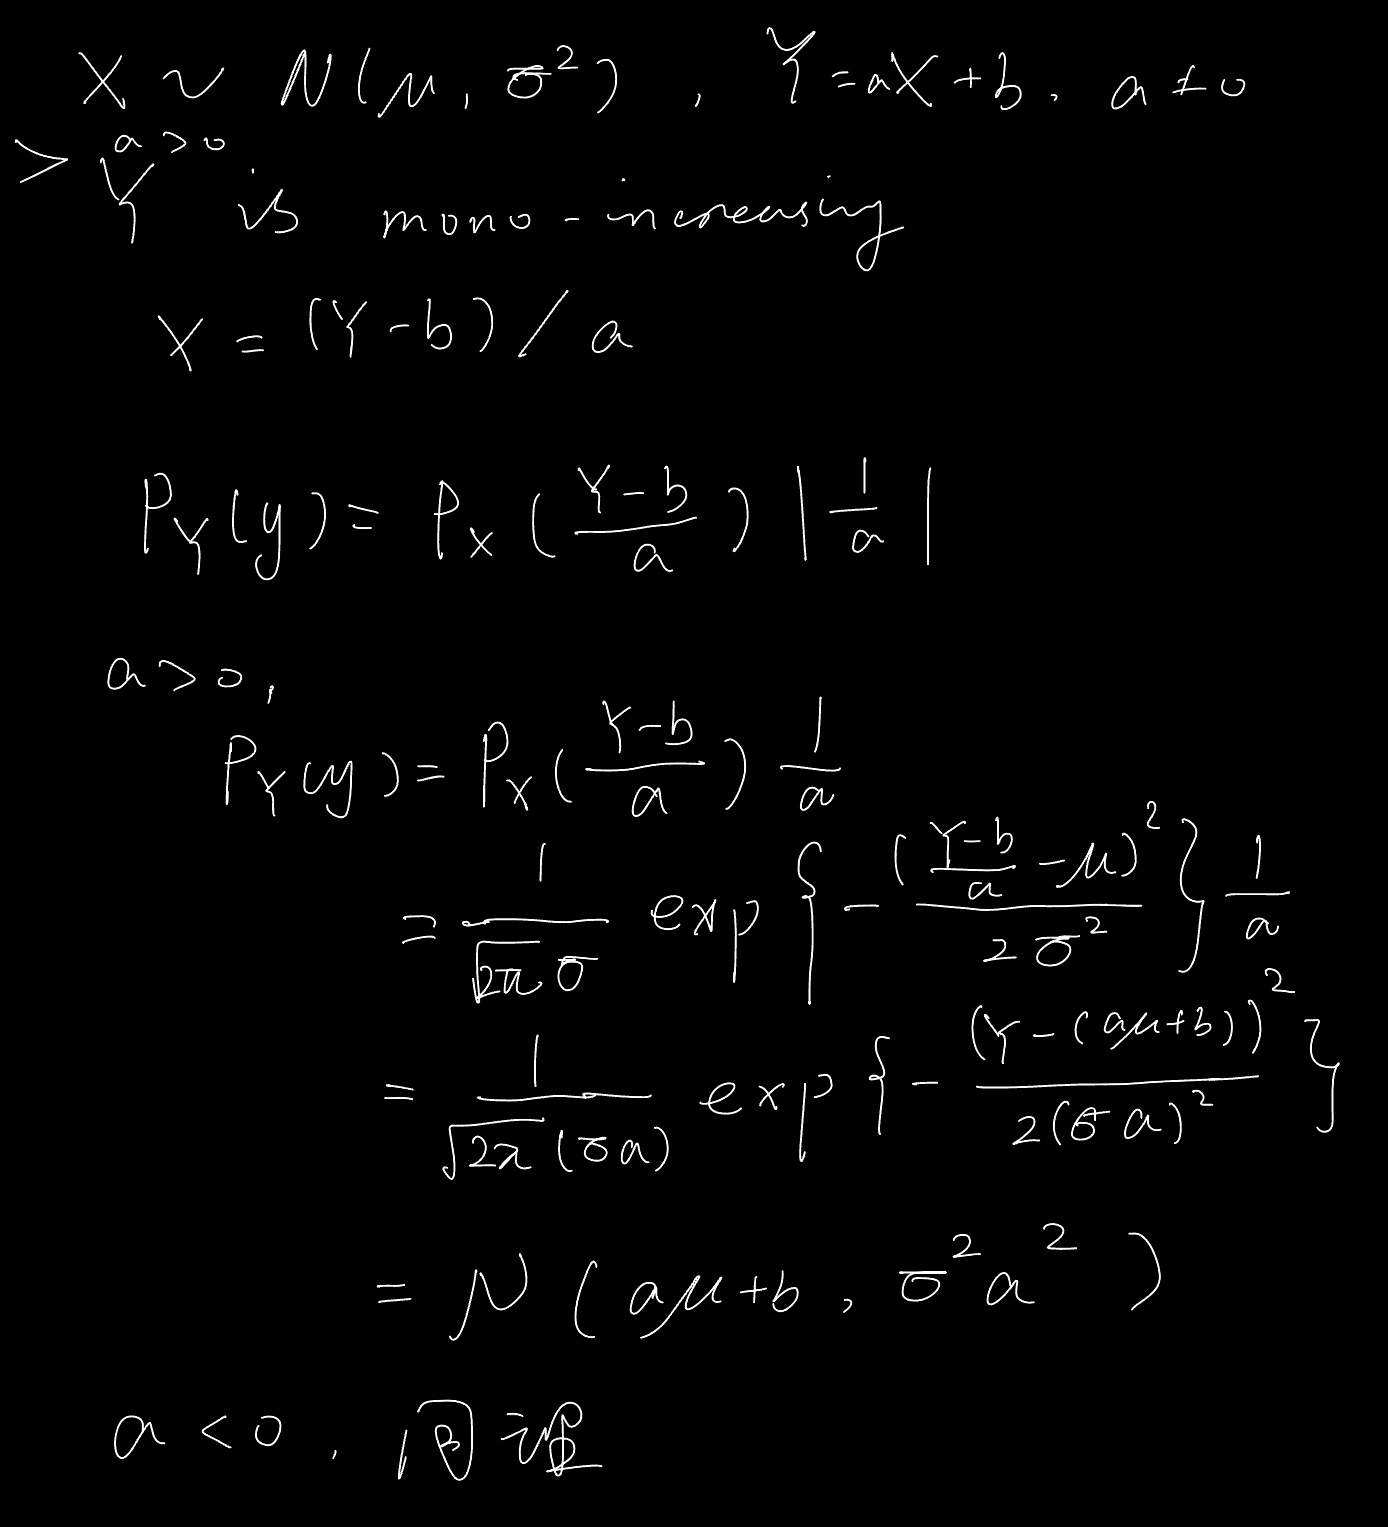 X ~ N(μ, σ²), Y=aX+b, a≠0
> a>0
Y is mono-increasing
X = (Y-b)/a
P_Y(y) = P_X((Y-b)/a) |1/a|
a>0,
P_Y(y) = P_X((Y-b)/a) 1/a
= 1/(√(2π) σ) exp{-((Y-b)/a - μ)²/(2σ²)} 1/a
= 1/(√(2π) (σa)) exp{-(Y-(aμ+b))²/(2(σa)²)}
= N(aμ+b, σ²a²)
a<0, 同理